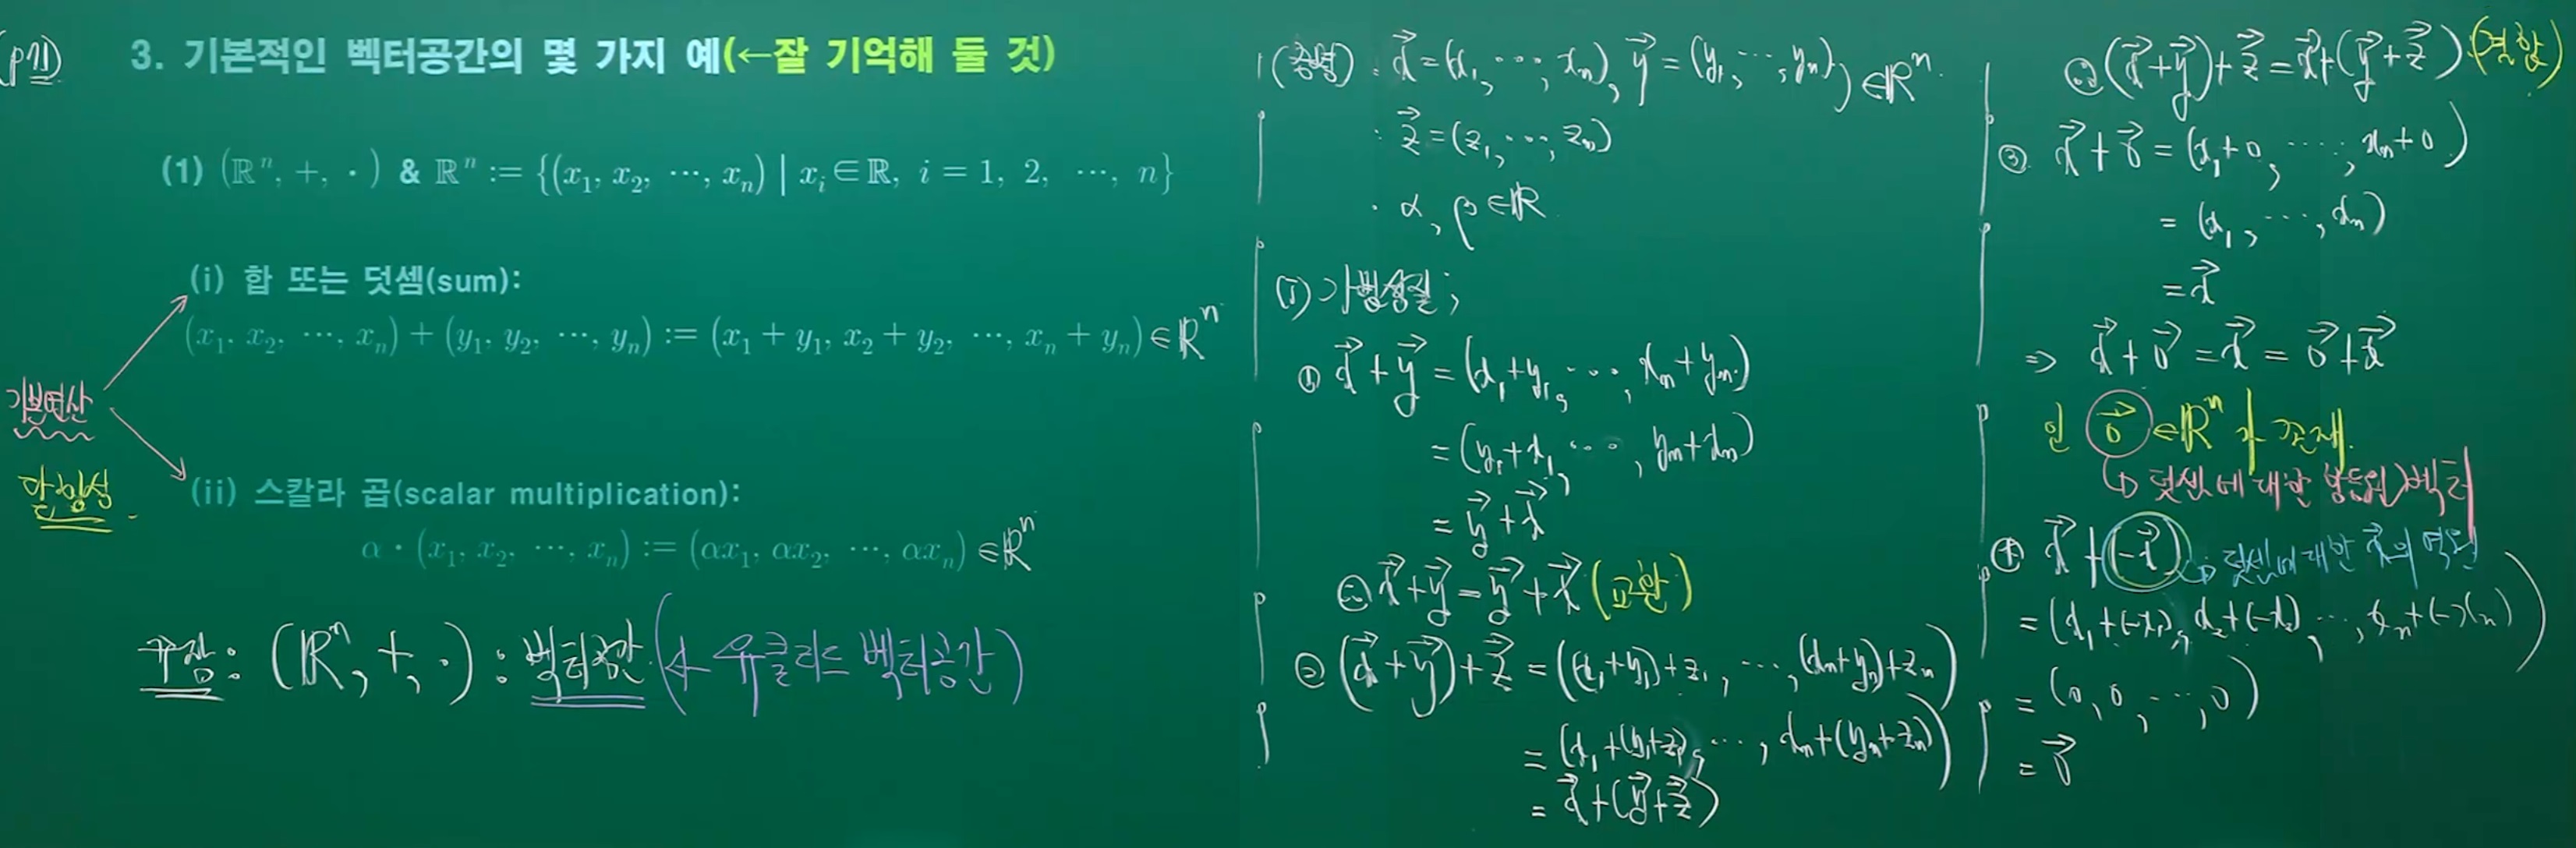 (p21)
3. 기본적인 벡터공간의 몇 가지 예(←잘 기억해 둘 것)
(1) (ℝⁿ, +, ·) & ℝⁿ := {(x₁, x₂, ⋯, xₙ) | xᵢ∈ℝ, i = 1, 2, ⋯, n}
(i) 합 또는 덧셈(sum):
(x₁, x₂, ⋯, xₙ) + (y₁, y₂, ⋯, yₙ) := (x₁ + y₁, x₂ + y₂, ⋯, xₙ + yₙ) ∈ℝⁿ
기본연산
닫힘성
(ii) 스칼라 곱(scalar multiplication):
α · (x₁, x₂, ⋯, xₙ) := (αx₁, αx₂, ⋯, αxₙ) ∈ℝⁿ
주장: (ℝⁿ, +, ·) : 벡터공간 (← 유클리드 벡터공간)
(증명) · x⃗=(x₁, ⋯, xₙ), y⃗=(y₁, ⋯, yₙ) ) ∈ℝⁿ.
· z⃗=(z₁, ⋯, zₙ)
· α, β∈ℝ
(I) 가법성질;
① x⃗+y⃗ = (x₁+y₁, ⋯, xₙ+yₙ)
= (y₁+x₁, ⋯, yₙ+xₙ)
= y⃗+x⃗
∴ x⃗+y⃗=y⃗+x⃗ (교환)
② (x⃗+y⃗)+z⃗ = ((x₁+y₁)+z₁, ⋯, (xₙ+yₙ)+zₙ)
= (x₁+(y₁+z₁), ⋯, xₙ+(yₙ+zₙ))
= x⃗+(y⃗+z⃗)
∴ (x⃗+y⃗)+z⃗=x⃗+(y⃗+z⃗) (결합)
③ x⃗+0⃗ = (x₁+0, ⋯, xₙ+0)
= (x₁, ⋯, xₙ)
= x⃗
⇒ x⃗+0⃗ = x⃗ = 0⃗+x⃗
인 0⃗ ∈ℝⁿ가 존재.
↳ 덧셈에 대한 항등원(벡터)
④ x⃗+(-x⃗) → 덧셈에 대한 x⃗의 역원
= (x₁+(-x₁), x₂+(-x₂), ⋯, xₙ+(-xₙ))
= (0, 0, ⋯, 0)
= 0⃗